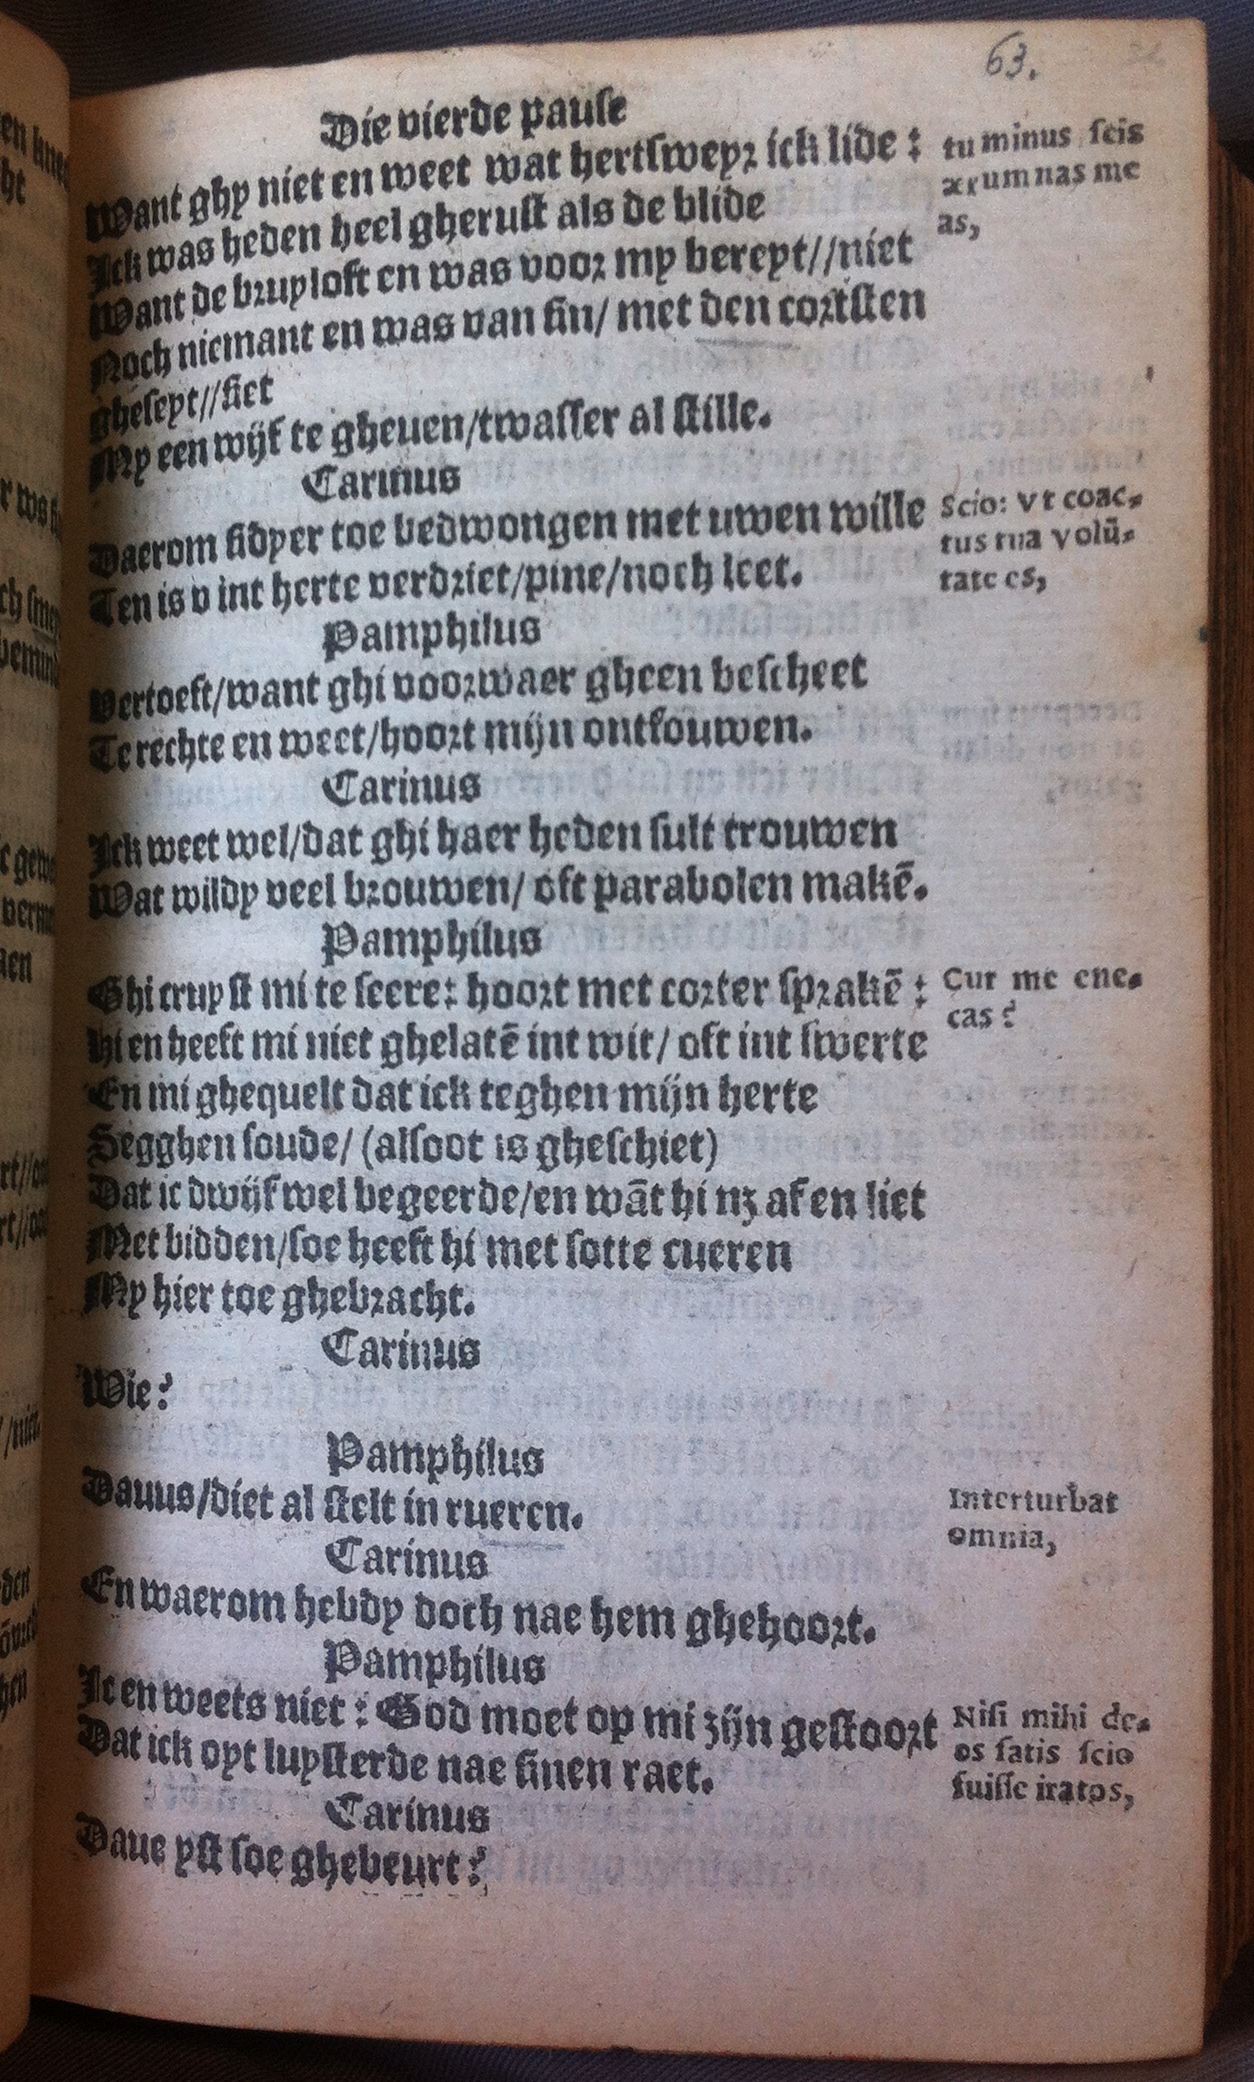 63.
Die vierde pause
Want ghy niet en weet wat hertsweyr ick lide:
tu minus scis
ærumnas me
as,
Ick was heden heel gherust als de blide
Want de bruyloft en was voor my bereyt//niet
Noch niemant en was van sin/ met den cortsten
gheseyt//siet
My een wijf te gheuen/twasser al stille.
Carinus
Daerom sidyer toe bedwongen met uwen wille
Scio: Vt coac-
tus tua volū-
tate es,
Ten is v int herte verdriet/pine/noch leet.
Pamphilus
Vertoeft/want ghi voorwaer gheen bescheet
Te rechte en weet/hoort mijn ontfouwen.
Carinus
Ick weet wel/dat ghi haer heden sult trouwen
Wat wildy veel brouwen/ oft parabolen makē.
Pamphilus
Ghi cruyst mi te seere: hoort met corter sprakē:
Cur me ene-
cas?
Hi en heeft mi niet ghelatē int wit/ oft int swerte
En mi ghequelt dat ick teghen mijn herte
Segghen soude/ (alsoot is gheschiet)
Dat ic dwijf wel begeerde/en wāt hi nz af en liet
Met bidden/soe heeft hi met sotte cueren
My hier toe ghebracht.
Carinus
Wie?
Pamphilus
Dauus/diet al stelt in rueren.
Interturbat
omnia,
Carinus
En waerom hebdy doch nae hem ghehoort.
Pamphilus
Ic en weets niet: God moet op mi zijn gestoort
Nisi mihi de-
os satis scio
fuisse iratos,
Dat ick oyt luysterde nae sinen raet.
Carinus
Daue yst soe ghebeurt?